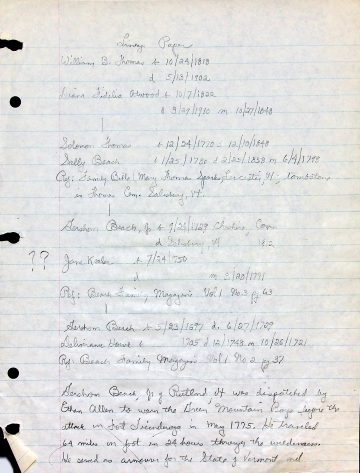 Lineage Paper
William B. Thomas b 10/24/1818
d 5/13/1902
Fidelia Atwood b 10/7/1822
d 3/27/1910 m 10/27/1840
Solomon Thomas b 12/24/1770 d 12/10/1848
Sally Beach b 1/25/1780 d 2/23/1858 m 6/4/1798
Ref: Family Bible Mary Thomas Sparks, Leicester, Vt, tombstone
in Thomas Cem. Salisbury, Vt.
Gershom Beach, Jr b 9/23/1729 Cheshire, Conn
d Salisbury, Vt
?? Jane b 7/24/1750
d m 2/20/1771
Ref: Beach Family Magazine Vol 1 No. 3 pg 63
Gershom Beach b 5/23/1697 d. 6/27/1709
Deliverance b 1705 d 12/1743 m 10/26/1721
Ref: Beach Family Magazine Vol 1 No. 2 pg 37
Gershom Beach, Jr of Rutland Vt was dispatched by
Ethan Allen to warn the Green Mountain Boys before the
attack on Fort Ticonderoga in May 1775. He traveled
64 miles on foot in 24 hours through the wilderness.
He served as armourer for the State of Vermont, and